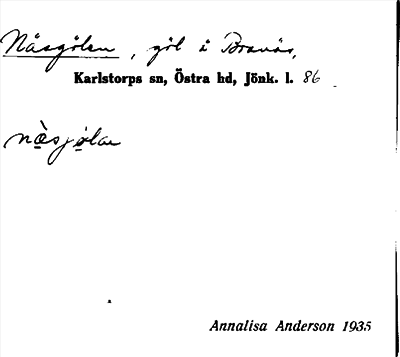 Näsgölen, göl i Branäs,
Karlstorps sn, Östra hd, Jönk. l. 86
næ̀sjølan
Annalisa Anderson 1935